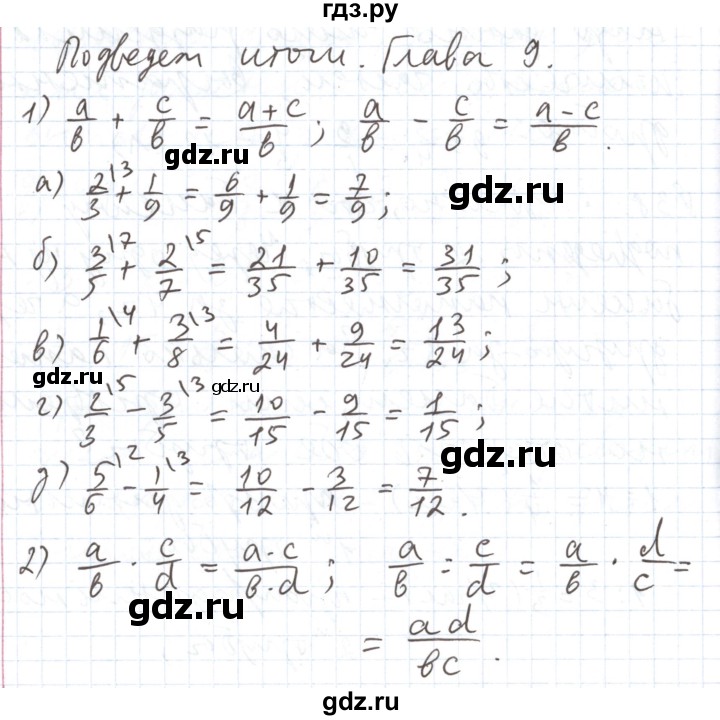 гдз.ру
Подведем итоги. Глава 9.
1) a/в + c/в = a+c/в; a/в - c/в = a-c/в.
gdz.ru
а) 2/3\3 + 1/9 = 6/9 + 1/9 = 7/9;
gdz.ru
б) 3/5\7 + 2/7\5 = 21/35 + 10/35 = 31/35;
в) 1/6\4 + 3/8\3 = 4/24 + 9/24 = 13/24;
gdz.ru gdz.ru
г) 2/3\5 - 3/5\3 = 10/15 - 9/15 = 1/15;
gdz.ru
д) 5/6\2 - 1/4\3 = 10/12 - 3/12 = 7/12.
2) a/в · c/d = a·c/в·d; a/в : c/d = a/в · d/c =
gdz.ru
= ad/вc.
gdz.ru